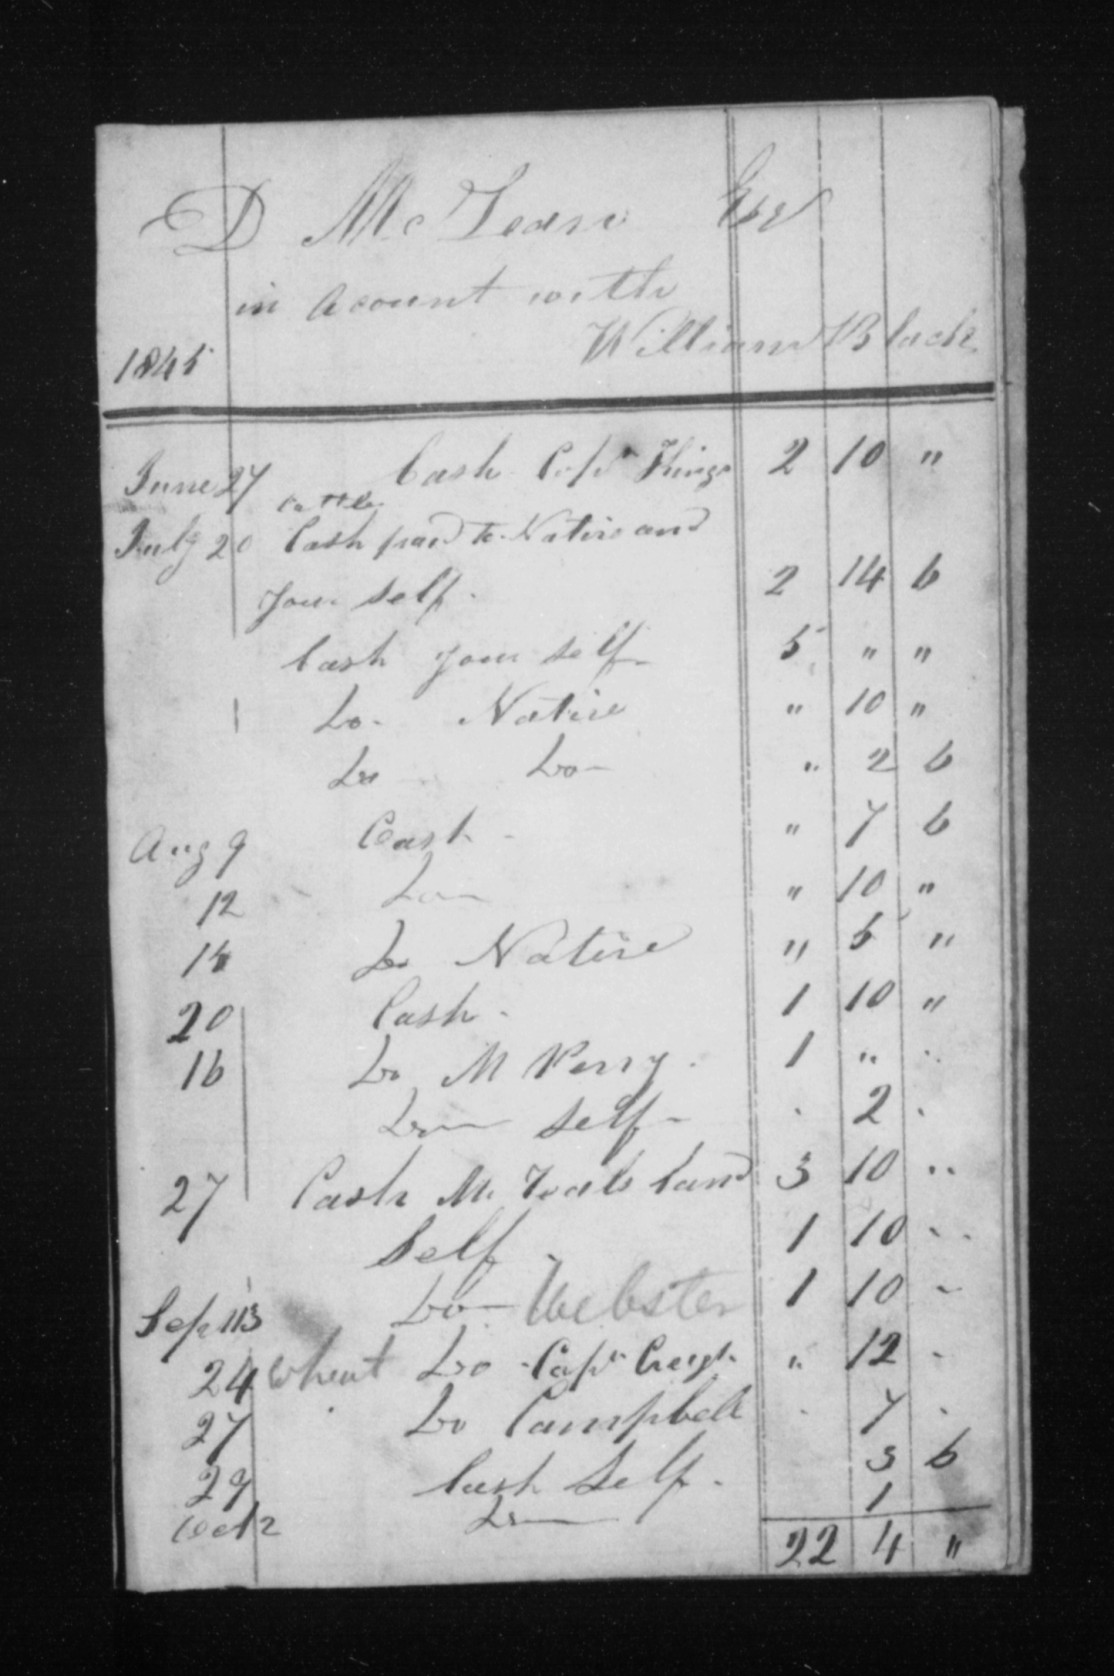 D McLean Esq
in Acount with
William Black
1845
June 27 Cash Capn Things 2 10 "
cattle
July 20 Cash paid to Native and
your self. 2 14 6
Cash your self 5 " "
Do. Native " 10 "
Do Do " 2 6
Aug 9 Cash - " 7 6
12 Do " 10 "
14 Do Native " 5 "
20 Cash - 1 10 "
16 Do M Perry. 1 " "
Do self - . 2 .
27 Cash Mr 3 10 "
Self - 1 10 "
Sep 113 Do - Webster 1 10 -
24 Wheat Do Capn " 12 -
27 Do Campbell . 7 .
29 Cash Self. 3 6
Oct 2 Do 1
22 4 "